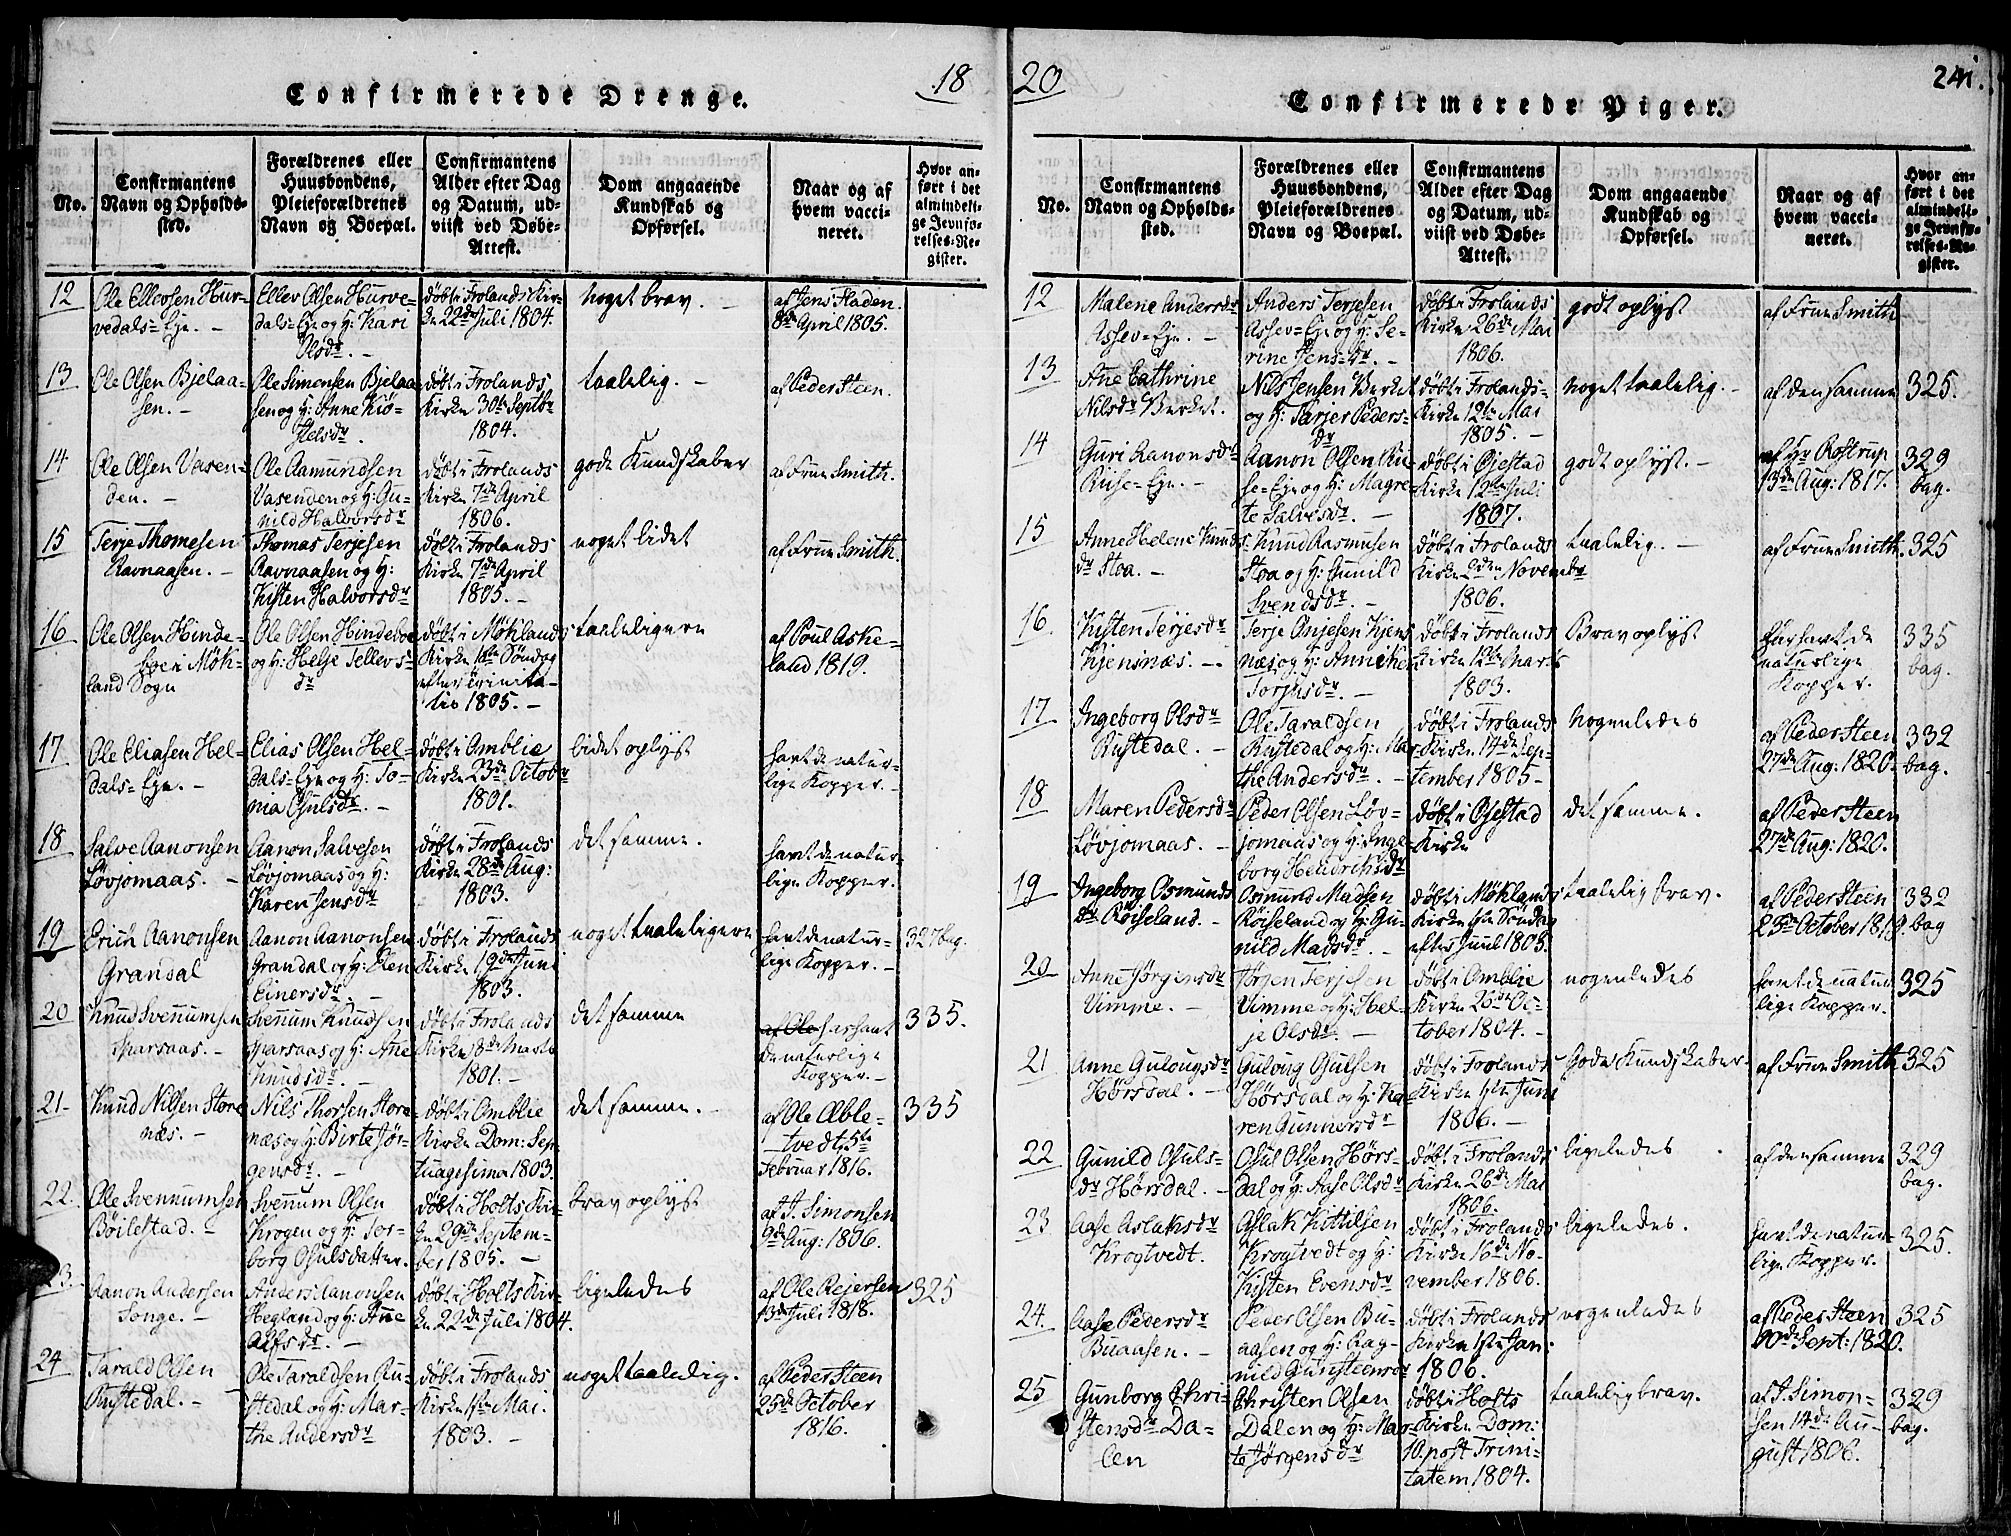 Confirmerede Drenge.
18
No.
Confirmantens
Navn og Opholds-
sted.
Forældrenes eller
Huusbondens,
Pleieforældrenes
Navn og Boepæl.
Confirmantens
Alder efter Dag
og Datum, ud-
viist ved Døbe-
Attest.
Dom angaaende
Kundskab og
Opførsel.
Naar og af
hvem vacci-
neret.
Hvor an-
ført i det
almindeli-
ge Jevnfø-
relses-Re-
gister.
12
Ole Ellevsen Hur-
vedals-Eje. -
Ellev Olsen Hurve-
dals-Eje og H: Kari
Olsdr. -
døbt i Frolands Kir-
ke 22de Juli 1804.
noget brav. -
af Jens Fladen.
8de April 1805.
13
Ole Olsen Bjelaa-
sen. -
Ole Simonsen Bjelaa-
sen og H: Anne Kiø-
stelsdr.
døbt i Frolands
Kirke 30te Septbr
1804.
taalelig. -
af Peder Steen.
14
Ole Olsen Vasen-
den. -
Ole Aamundsen
Vasenden og H: Gu-
nild Halvorsdr
døbt i Frolands
Kirke 7de April
1806.
gode Kundskaber
af Frue Smith.
15
Terje Thomesen
Ravnaasen. -
Thomas Terjesen
Ravnaasen og H:
Kisten Halvorsdr
døbt i Frolands
Kirke 7de April
1805. -
noget lidet
af Frue Smith.
16
Ole Olsen Hinde-
boe i Møk-
land Sogn
Ole Olsen Hindeboe
og H: Helje Tellevs-
dr
døbt i Møklands
Kirke 1ste Søndag
efter Trinita-
tis 1805. -
taaleligere
af Poul Aske-
land 1819.
17
Ole Eliasen Hel-
dals-Eje. -
Elias Olsen Hel-
dals-Eje og H: To-
nia Osulsdr. -
døbt i Amblie
Kirke 23de Octobr
1801.
lidet oplyst
havt de natur-
lige Kopper. -
18
Salve Aanonsen
Løvjomaas. -
Aanon Salvesen
Løvjomaas og H:
Karen Jensdr
døbt i Frolands
Kirke 28de Aug:
1803.
det samme.
havt de natur-
lige Kopper.
19
Erich Aanonsen
Grandal
Aanon Aanonsen
Grandal og H: Elen
Einersdr. -
døbt i Frolands
Kirke 19de Juni
1803.
noget taaleligere
havt de natur-
lige Kopper. -
327 bag.
20
Knud Svenumsen
Sparsaas. -
Svenum Knudsen
Sparsaas og H: Ane
Knudsdr. -
døbt i Frolands
Kirke 8de Marts
1801. -
det samme
af Ole har havt
de naturlige
Kopper. -
335.
21
Knud Nilsen Store-
næs. -
Nils Thorsen Store-
næs og H: Birte Jør-
gensdr. -
døbt i Amblie
Kirke Dom: Sep-
tuagesima 1803.
det samme. -
af Ole Æble-
tvedt, 5te
Februar 1816.
335
22.
Ole Svennumsen
Böilestad. -
Svenum Olsen
Krogen og H: Tor-
borg Osulsdatter.
døbt i Holts Kir-
ke 29de Septem-
ber 1805. -
brav oplyst
af J. Simonsen
9de Aug: 1806.
23.
Aanon Andersen
Songe. -
Anders Aanonsen
Hegland og H: Ane
Alfsdr. -
døbt i Holts Kir-
ke 22de Juli 1804.
ligeledes
af Ole Rejersen
13de Juli 1818.
325
24
Tarald Olsen
Rustedal. -
Ole Taraldsen Ru-
stedal og H: Mar-
the Andersdr
døbt i Frolands
Kirke 1ste Mai
1803. -
noget taalelig.
af Peder Steen
25de October
1816.
20
241.
Confirmerede Piger.
No.
Confirmantens
Navn og Opholds-
sted.
Forældrenes eller
Huusbondens,
Pleieforældrenes
Navn og Boepæl.
Confirmantens
Alder efter Dag
og Datum, ud-
viist ved Døbe-
Attest.
Dom angaaende
Kundskab og
Opførsel.
Naar og af
hvem vacci-
neret.
Hvor an-
ført i det
almindeli-
ge Jevnfø-
relses-Re-
gister.
12
Malene Andersdr
Assev-Eje. -
Anders Terjesen
Assev-Eje og H: Se-
rine Jens-dr. -
døbt i Frolands
Kirke 26de Mai
1806.
godt oplyst
af Frue Smith
13
Ane Cathrine
Nilsdr Berket.
Nils Jensen Berket
og H: Tarjer Peders-
dr
døbt i Frolands-
Kirke 12te Mai
1805. -
noget taalelig. -
af den samme
325.
14
Guri Aanonsdr
Riise-Eje. -
Aanon Olsen Rii-
se-Eje og H: Magre-
te Salvesdr. -
døbt i Øjestad
Kirke 12te Juli
1807.
godt oplyst. -
af Hr Rostrup
13de Aug: 1817.
329
bag.
15
Anne Helene Knuds-
dr Stoa. -
Knud Rasmusen
Stoa og H: Gunild
Svendsdr. -
døbt i Frolands
Kirke 2den Novembr
1806.
taalelig. -
af Frue Smith.
325
16
Kisten Terjesdr
Kjensnæs. -
Terje Onjesen Kjens-
næs og H: Anneken
Torjusdr. -
døbt i Frolands
Kirke 12te Marts
1803.
Brav oplyst
har havt de
naturlige
Kopper.
335
bag.
17
Ingeborg Olsdr
Rustedal. -
Ole Taraldsen
Rustedal og H: Mar-
the Andersdr. -
døbt i Frolands
Kirke 14de Sep-
tember 1805 -
nogenledes
af Peder Steen
27de Aug: 1820.
332
bag.
18
Maren Pedersdr
Løvjomaas. -
Peder Olsen Løv-
jomaas og H: Inge-
borg Hendriksdr
døbt i Øjestad
Kirke
det samme.
af Peder Steen
27de Aug: 1820.
19
Ingeborg Osmunds-
dr Röiseland. -
Osmund Madsen
Röiseland og H: Gu-
nild Madsdr. -
døbt i Møklands
Kirke 1ste Søndag
efter Juul 1805.
taalelig brav.
af Peder Steen
25de October 1819.
332
bag
20
Anne Jørgensdr
Vimme. -
Jørgen Terjesen
Vimme og H: Hel-
je Olsdr. -
døbt i Amblie
Kirke 26de Oc-
tober 1804. -
nogenledes
havt de natur-
lige Kopper.
325
21
Anne Gulougsdr
Hørsdal. -
Guloug Osulsen
Hørsdal og H: Ka-
ren Gunnersdr
døbt i Frolands
Kirke 1ste Juni
1806. -
Gode Kundskaber
af Frue Smith
325
22
Gunild Osuls-
dr Hørsdal. -
Osul Olsen Hørs-
dal og H: Aase Olsdr
døbt i Frolands
Kirke 26de Mai
1806.
ligeledes
af den samme
329
bag.
23
Aase Aslaksdr
Krogtvedt.
Aslak Kittilsen
Krogtvedt og H:
Kisten Evensdr
døbt i Frolands
Kirke 16de No-
vember 1806.
ligeledes.
havt de natur-
lige Kopper.
325.
24.
Aase Pedersdr
Buaasen. -
Peder Olsen Bu-
aasen og H: Rag-
nild Gunsteensdr
døbt i Frolands
Kirke 1ste Jan:
1806.
nogenledes
af Peder Steen
10de Sept: 1820.
325
25
Gunborg Chri-
stensdr Da-
len
Christen Olsen
Dalen og H: Mar-
te Jørgensdr
døbt i Holts
Kirke Dom:
10. post Trini-
tatem 1804.
taalelig brav.
af J. Simon-
sen 14de Au-
gust 1806.
329
bag.